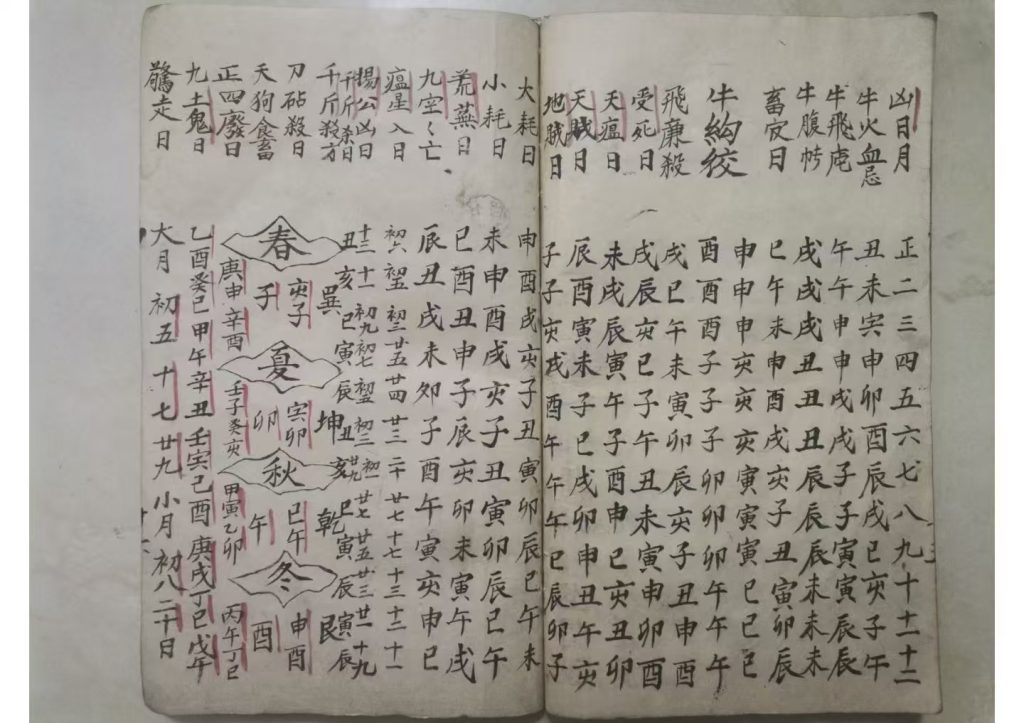 凶日月 正二三四五六七八九十十一十二
牛火血忌 丑未寅申卯酉辰戌巳亥子午
牛飛庑 午午申申戌戌子子寅寅辰辰
牛腹 戌戌戌丑丑丑辰辰辰未未未
畜㝎日 巳午未申酉戌亥子丑寅卯辰
牛絇絞 申申申亥亥亥寅寅寅巳巳巳
酉酉酉子子子卯卯卯午午午
飛廉殺 戌巳午未寅卯辰亥子丑申酉
受死日 戌辰亥巳子午丑未寅申卯酉
天瘟日 未戌辰寅午子酉申巳亥丑卯
天賊日 辰酉寅未子巳戌卯申丑午亥
地賊日 子子亥戌酉午午午巳辰卯子
大耗日 申酉戌亥子丑寅卯辰巳午未
小耗日 未申酉戌亥子丑寅卯辰巳午
荒蕪日 巳酉丑申子辰亥卯未寅午戌
九空〻亡 辰丑戌未卯子酉午寅亥申巳
瘟星入日 初六 初五 初三 廿五 廿四 廿三 二十 廿七 十七 十三 十二 十一
楊公凶日 十三 十一 初九 初七 初五 初三 初一 廿九 廿七 廿五 廿三 廿一 十九
千斤杀日 丑亥巳寅辰丑亥巳寅辰寅辰
千斤殺方 巽 坤 乾 艮
刀砧殺日 亥子 寅卯 巳午 申酉
天狗食畜 子 卯 午 酉
春 夏 秋 冬
正四廢日 庚申辛酉 壬子癸亥 甲寅乙卯 丙午丁巳
九土鬼日 乙酉癸巳甲午辛丑壬寅己酉庚戌丁巳戊午
驚走日 大月初五十七廿九小月初八二十日